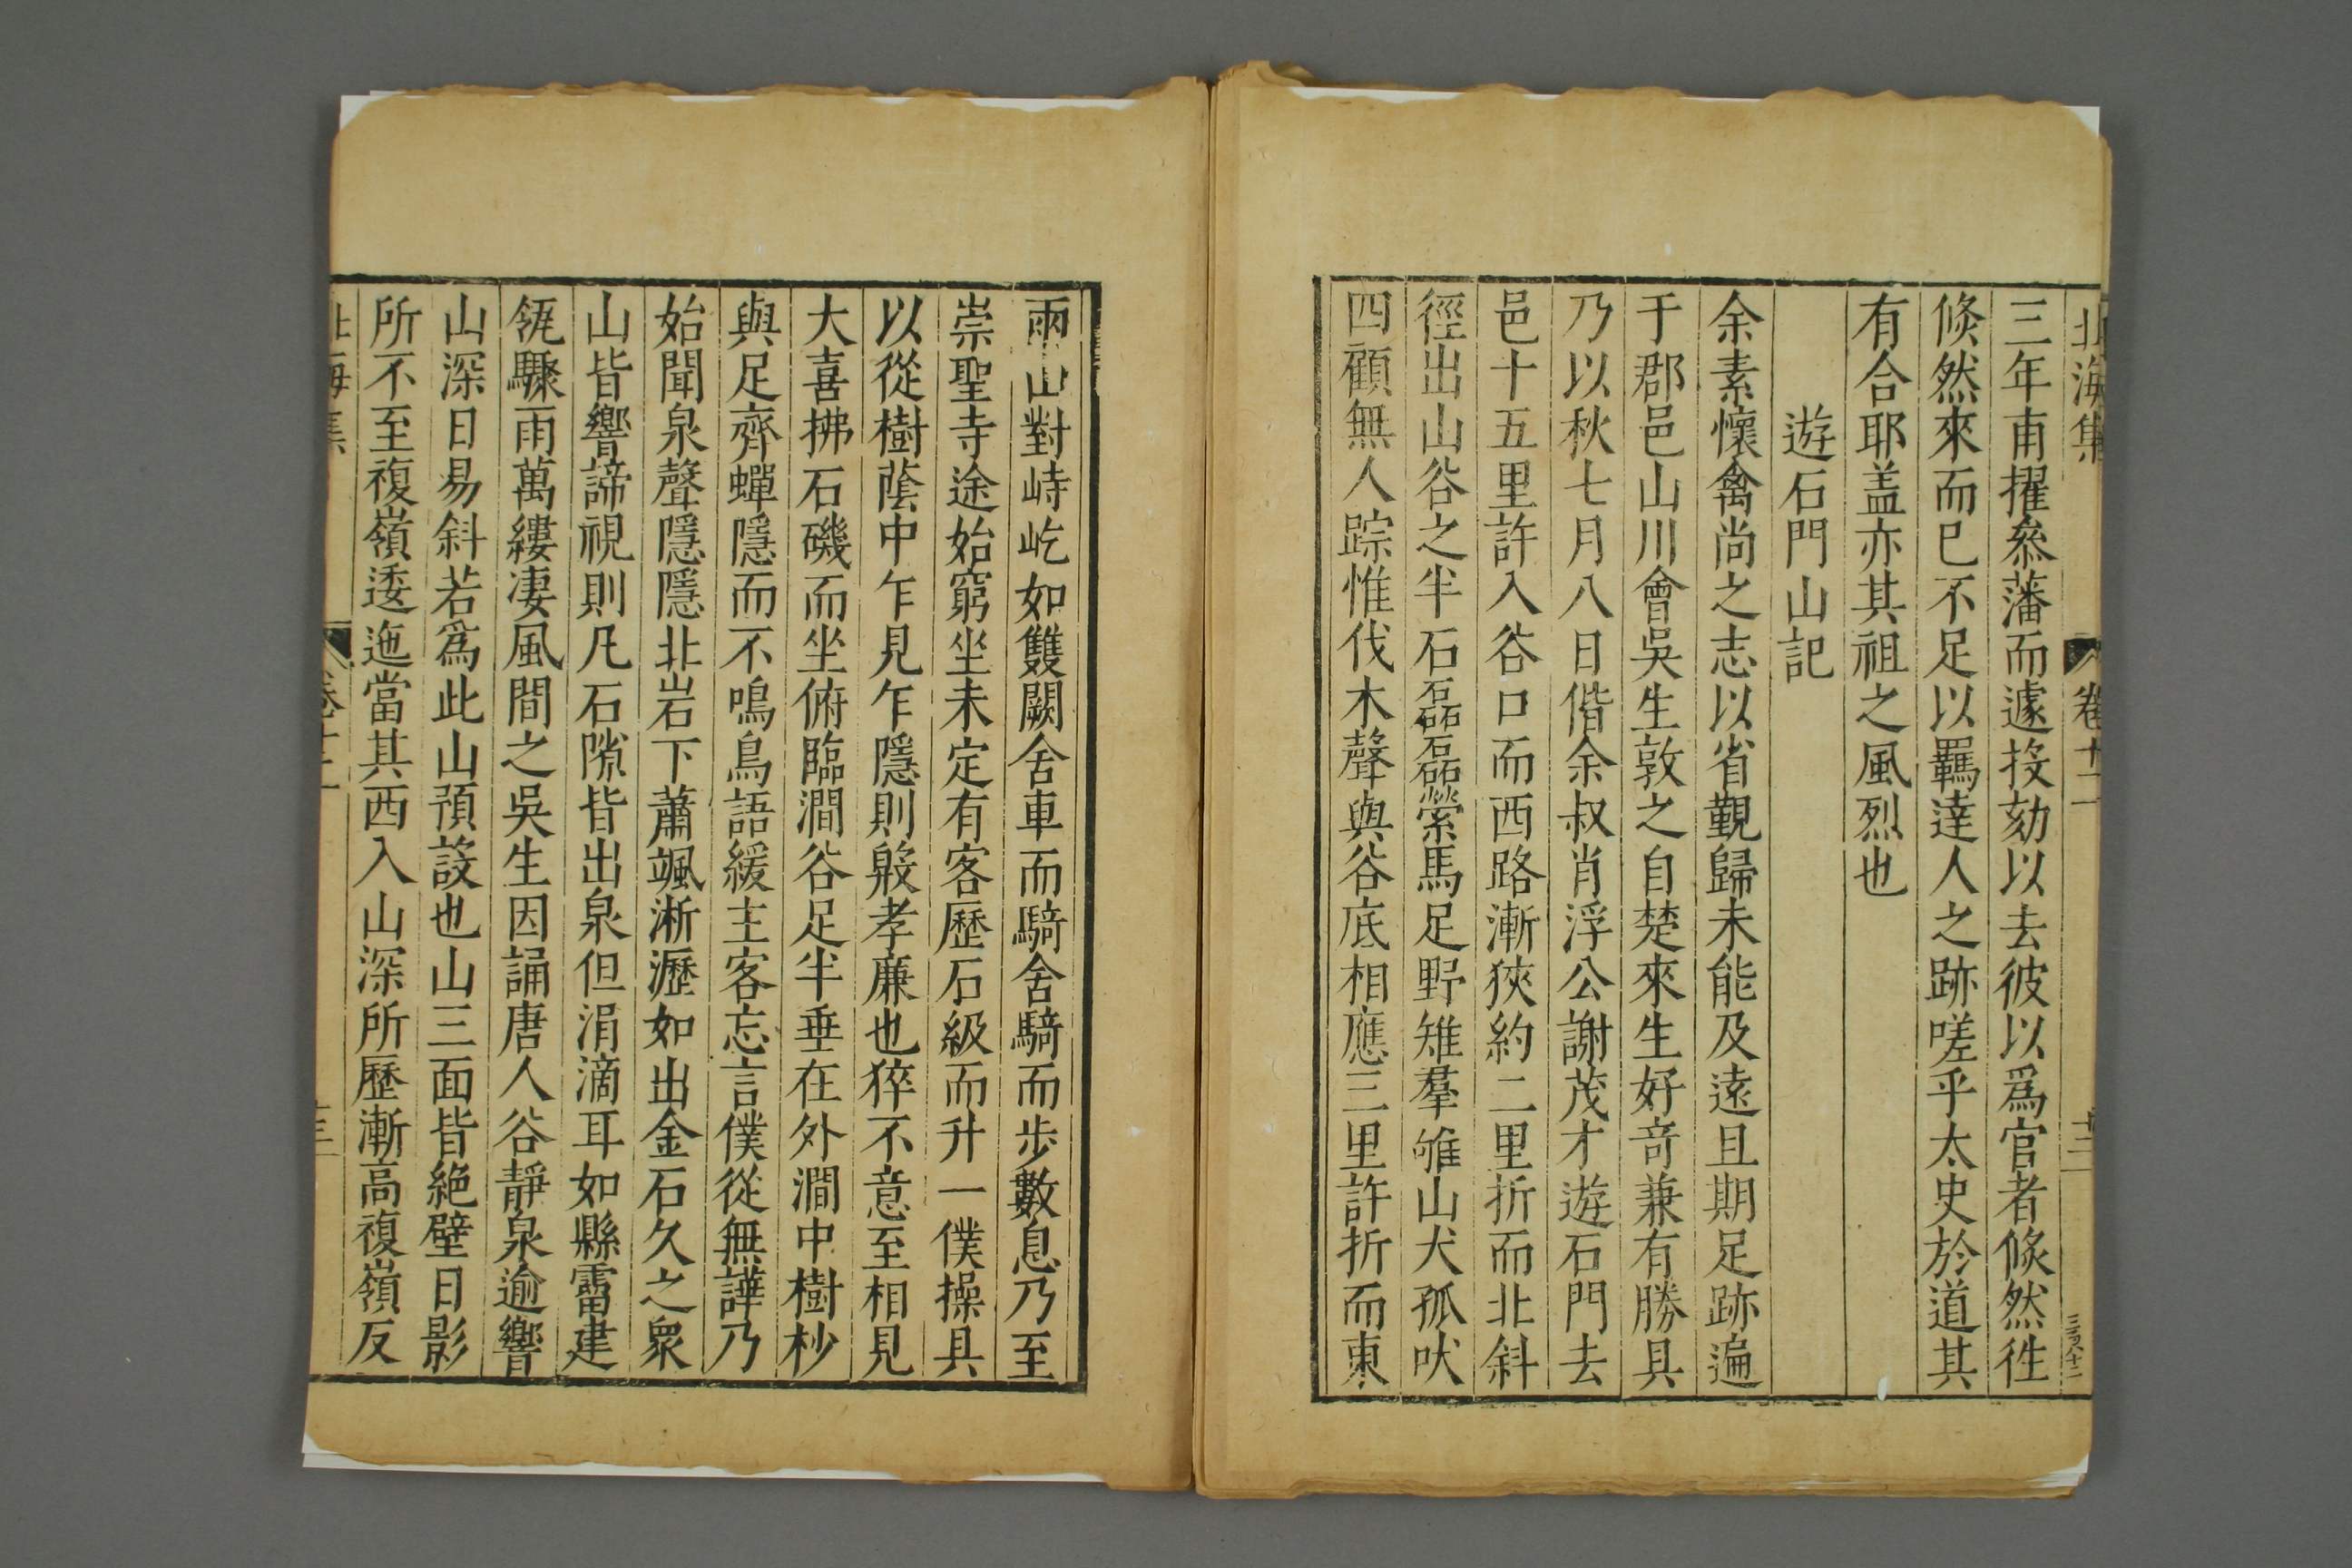 北海集 卷十二 十二
三年甫擢叅藩而遽投劾以去彼以爲官者倏然徃
倏然來而已不足以羈達人之跡嗟乎太史於道其
有合耶盖亦其祖之風烈也
遊石門山記
余素懷禽尚之志以省覲歸未能及遠且期足跡遍
于郡邑山川會吳生敦之自楚來生好竒兼有勝具
乃以秋七月八日偕余叔肖浮公謝茂才遊石門去
邑十五里許入谷口而西路漸狹約二里折而北斜
徑出山谷之半石磊磊縈馬足野雉羣雊山犬孤吠
四顧無人踪惟伐木聲與谷底相應三里許折而東
兩山對峙屹如雙闕舍車而騎舍騎而步數息乃至
崇聖寺途始窮坐未定有客歷石級而升一僕操具
以從樹蔭中乍見乍隱則殷孝廉也猝不意至相見
大喜拂石磯而坐俯臨澗谷足半垂在外澗中樹杪
與足齊蟬隱而不鳴鳥語緩主客忘言僕從無譁乃
始聞泉聲隱隱北岩下蕭颯淅瀝如出金石久之衆
山皆響諦視則凡石隙皆出泉但涓滴耳如縣霤建
瓴驟雨萬縷凄風間之吳生因誦唐人谷靜泉逾響
山深日易斜若爲此山預設也山三面皆絶壁日影
所不至複嶺逶迤當其西入山深所歷漸高複嶺反
北海集 卷十二 十三